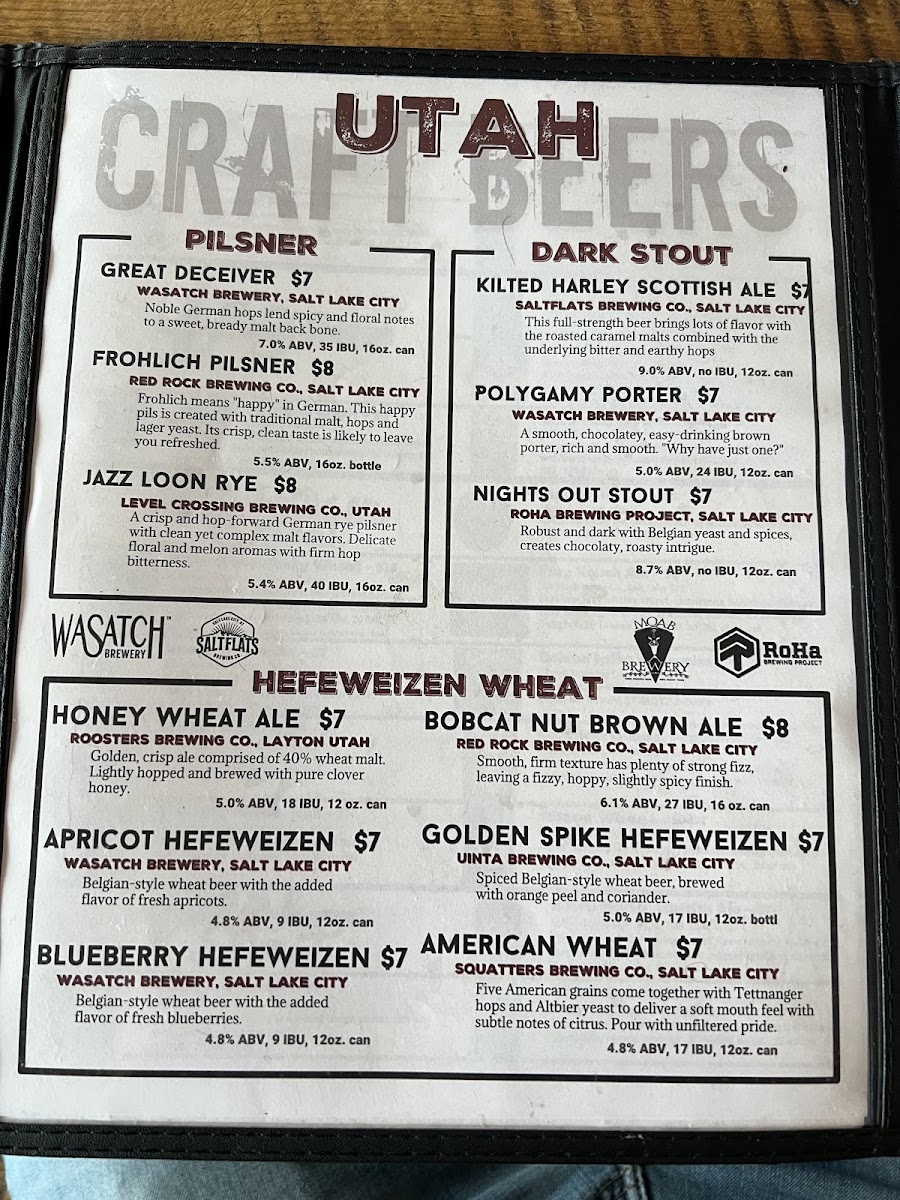 UTAH
CRAFT BEERS
PILSNER
GREAT DECEIVER $7
WASATCH BREWERY, SALT LAKE CITY
Noble German hops lend spicy and floral notes
to a sweet, bready malt back bone.
7.0% ABV, 35 IBU, 16oz. can
FROHLICH PILSNER $8
RED ROCK BREWING CO., SALT LAKE CITY
Frohlich means "happy" in German. This happy
pils is created with traditional malt, hops and
lager yeast. Its crisp, clean taste is likely to leave
you refreshed.
5.5% ABV, 16oz. bottle
JAZZ LOON RYE $8
LEVEL CROSSING BREWING CO., UTAH
A crisp and hop-forward German rye pilsner
with clean yet complex malt flavors. Delicate
floral and melon aromas with firm hop
bitterness.
5.4% ABV, 40 IBU, 16oz. can
DARK STOUT
KILTED HARLEY SCOTTISH ALE $7
SALTFLATS BREWING CO., SALT LAKE CITY
This full-strength beer brings lots of flavor with
the roasted caramel malts combined with the
underlying bitter and earthy hops
9.0% ABV, no IBU, 12oz. can
POLYGAMY PORTER $7
WASATCH BREWERY, SALT LAKE CITY
A smooth, chocolatey, easy-drinking brown
porter, rich and smooth. "Why have just one?"
5.0% ABV, 24 IBU, 12oz. can
NIGHTS OUT STOUT $7
ROHA BREWING PROJECT, SALT LAKE CITY
Robust and dark with Belgian yeast and spices,
creates chocolaty, roasty intrigue.
8.7% ABV, no IBU, 12oz. can
WASATCH™
BREWERY
SALT LAKE CITY, UT
SALTFLATS
BREWING CO.
MOAB
BREWERY
RoHa
BREWING PROJECT
HEFEWEIZEN WHEAT
HONEY WHEAT ALE $7
ROOSTERS BREWING CO., LAYTON UTAH
Golden, crisp ale comprised of 40% wheat malt.
Lightly hopped and brewed with pure clover
honey.
5.0% ABV, 18 IBU, 12 oz. can
APRICOT HEFEWEIZEN $7
WASATCH BREWERY, SALT LAKE CITY
Belgian-style wheat beer with the added
flavor of fresh apricots.
4.8% ABV, 9 IBU, 12oz. can
BLUEBERRY HEFEWEIZEN $7
WASATCH BREWERY, SALT LAKE CITY
Belgian-style wheat beer with the added
flavor of fresh blueberries.
4.8% ABV, 9 IBU, 12oz. can
BOBCAT NUT BROWN ALE $8
RED ROCK BREWING CO., SALT LAKE CITY
Smooth, firm texture has plenty of strong fizz,
leaving a fizzy, hoppy, slightly spicy finish.
6.1% ABV, 27 IBU, 16 oz. can
GOLDEN SPIKE HEFEWEIZEN $7
UINTA BREWING CO., SALT LAKE CITY
Spiced Belgian-style wheat beer, brewed
with orange peel and coriander.
5.0% ABV, 17 IBU, 12oz. bottl
AMERICAN WHEAT $7
SQUATTERS BREWING CO., SALT LAKE CITY
Five American grains come together with Tettnanger
hops and Altbier yeast to deliver a soft mouth feel with
subtle notes of citrus. Pour with unfiltered pride.
4.8% ABV, 17 IBU, 12oz. can